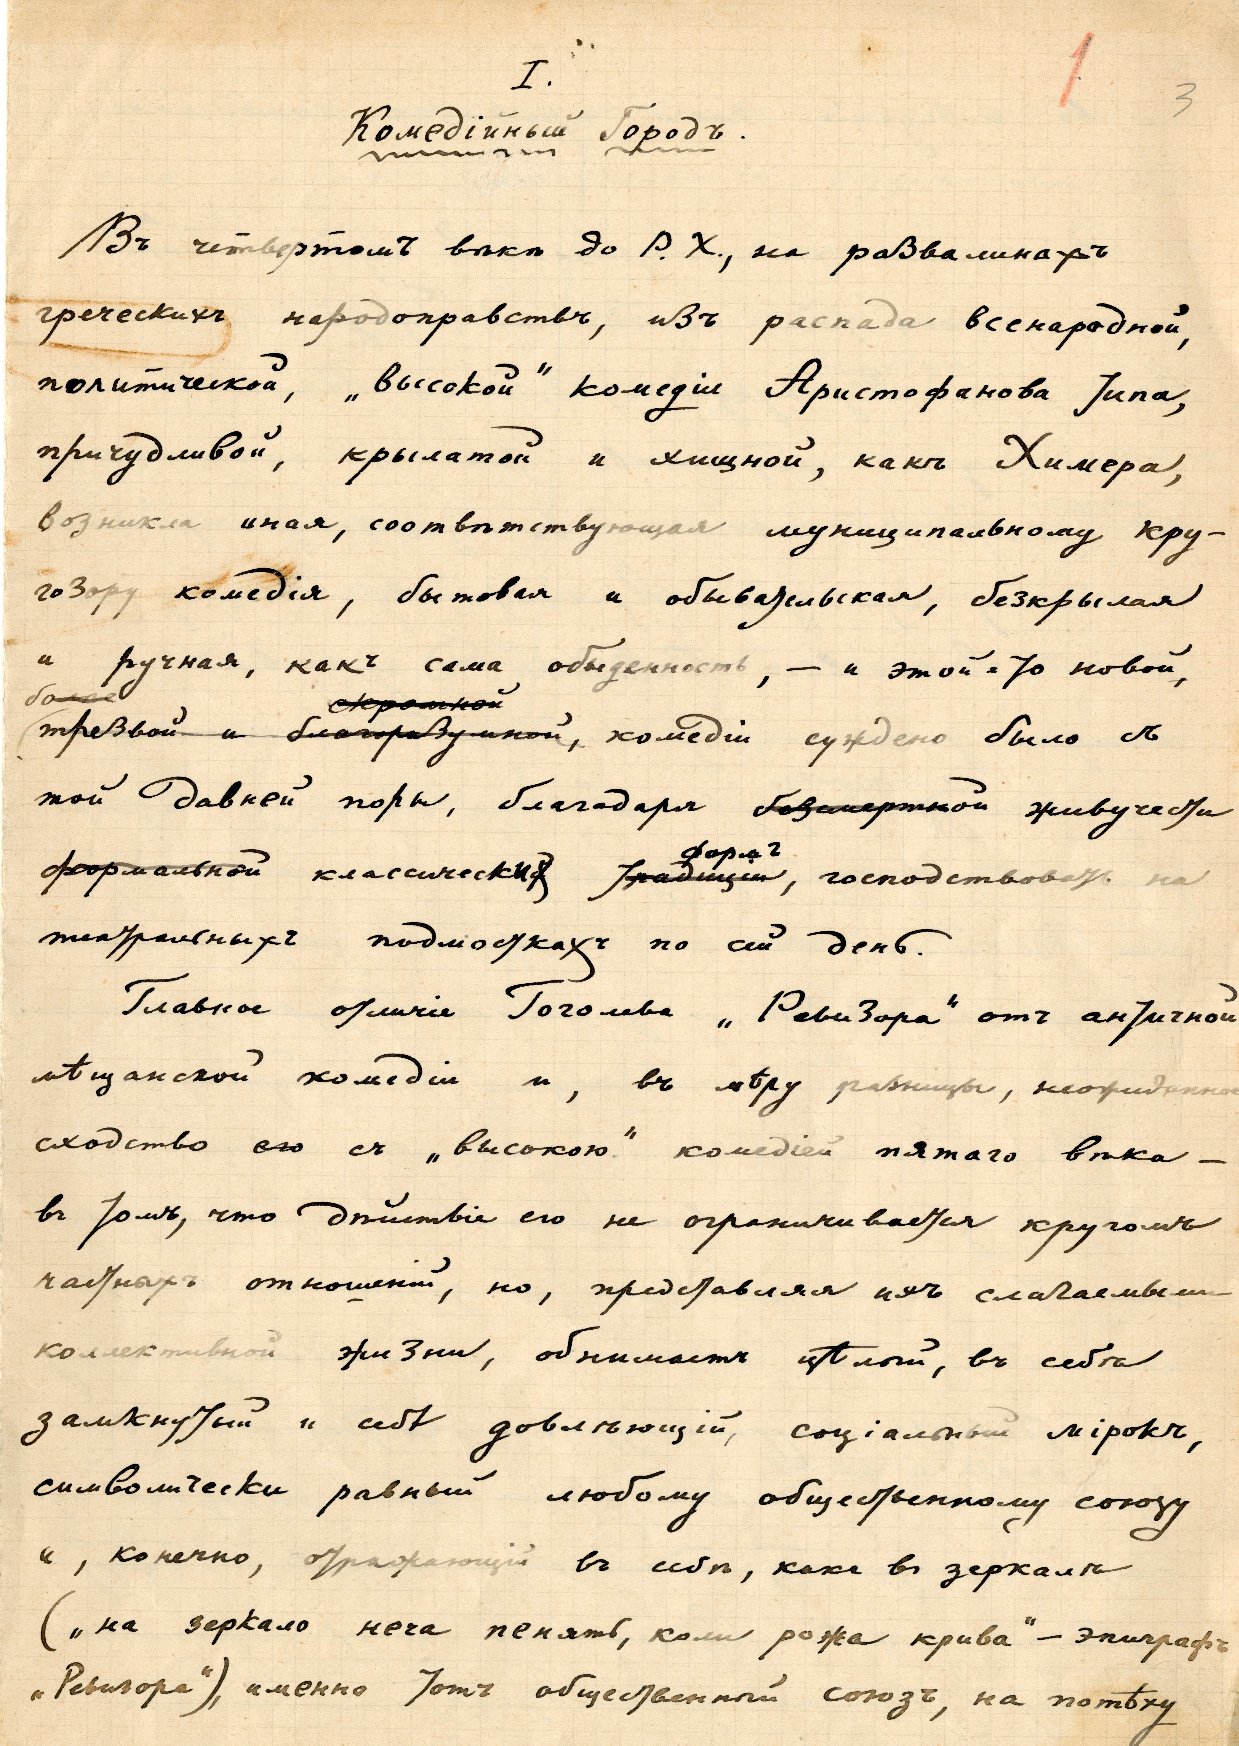 1
3
I.
Комедійный Городъ.
Въ четвертомъ вѣкѣ до Р. Х., на развалинахъ
греческихъ народоправствъ, изъ распада всенародной,
политической, „высокой“ комедіи Аристофанова типа,
причудливой, крылатой и хищной, какъ Химера,
возникла иная, соотвѣтствующая муниципальному кру-
гозору комедія, бытовая и обывательская, безкрылая
и ручная, какъ сама обыденность, — и этой-то новой,
более скромной
трезвой и благоразумной, комедіи суждено было съ
той давней поры, благодаря безсмертной живучести
формъ
формальной классическихъ традиціи, господствовать на
театральныхъ подмосткахъ по сей день.
Главное отличіе Гоголева „Ревизора“ отъ античной
мѣщанской комедіи и, въ мѣру разницы, неожиданное
сходство его съ „высокою“ комедіей пятаго вѣка —
въ томъ, что дѣйствіе его не ограничивается кругомъ
частныхъ отношеній, но, представляя ихъ слагаемыми
коллективной жизни, обнимаетъ цѣлый, въ себѣ
замкнутый и себѣ довлѣющій, соціальный мірокъ,
символически равный любому общественному союзу
и, конечно, отражающій въ себѣ, какъ въ зеркалѣ
(„на зеркало неча пенять, коли рожа крива“ — эпиграфъ
„Ревизора“), именно тотъ общественный союзъ, на потѣху